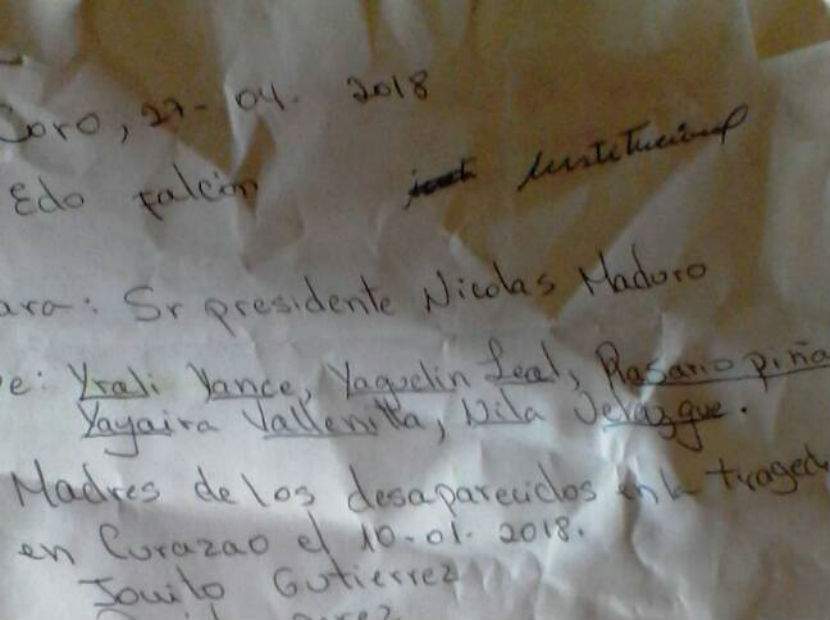 Coro, 27-04-2018
Institucional
Edo Falcón
ara: Sr presidente Nicolas Maduro
e: Yrali Yance, Yaguelin Leal, Rosario piña
Yayaira Vallenilla, Nila Velazque.
Madres de los desaparecidos en la traged
en Curazao el 10-01-2018.
Gutierrez